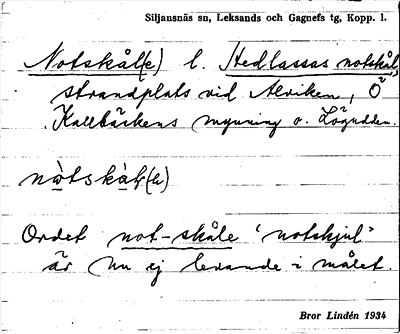 Siljansnäs sn, Leksands och Gagnefs tg, Kopp. l.
Notskål(e) l. Hedlassas notskål,
strandplats vid Alviken, Ö
Kallbäckens mynning o. Lögudden.
nòtskàl(e)
Ordet not-skåle 'notskjul'
är nu ej levande i målet.
Bror Lindén 1934